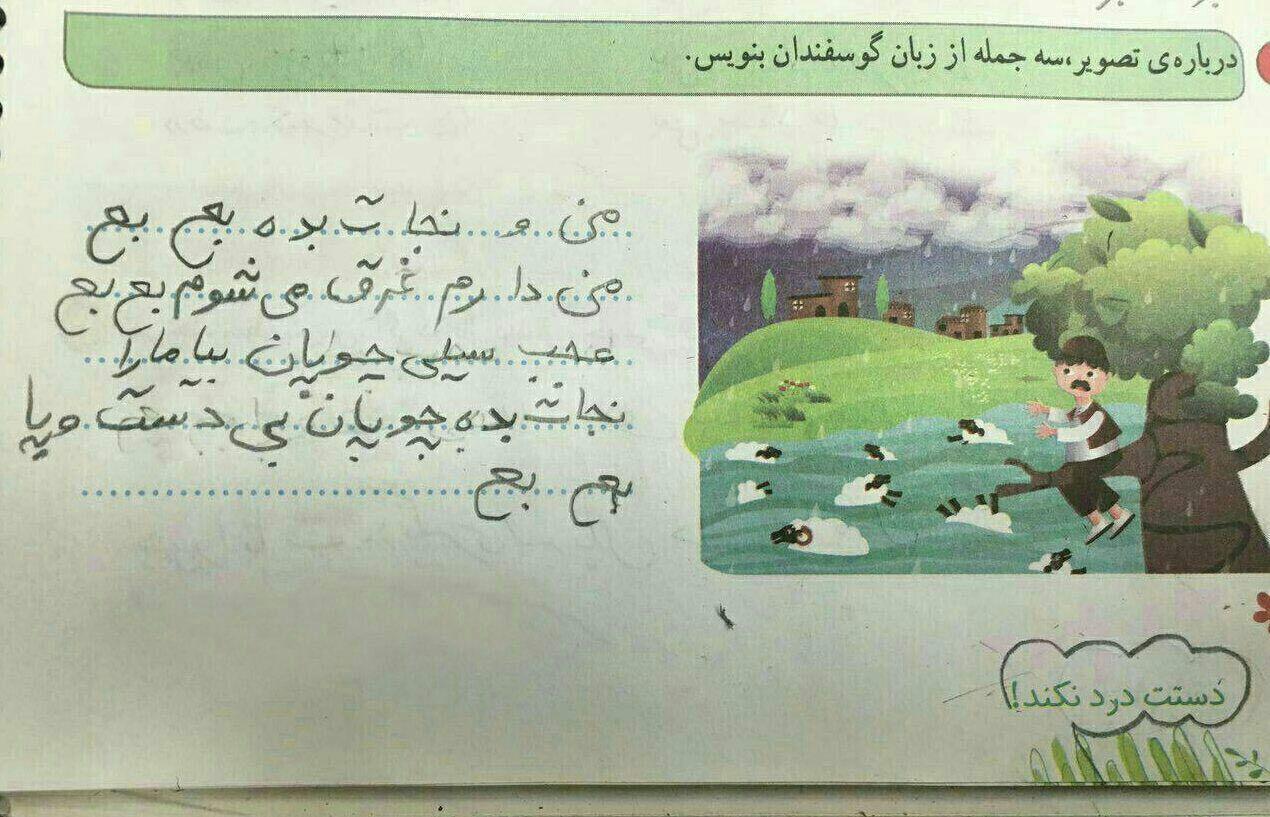 درباره‌ی تصویر،سه جمله از زبان گوسفندان بنویس.
من و نجات بده بع بع
من دارم غرق می شوم بع بع
عجب سیلی چوپان بیا ما را
نجات بده چوپان بی دست و پا
بع بع
دستت درد نکند!